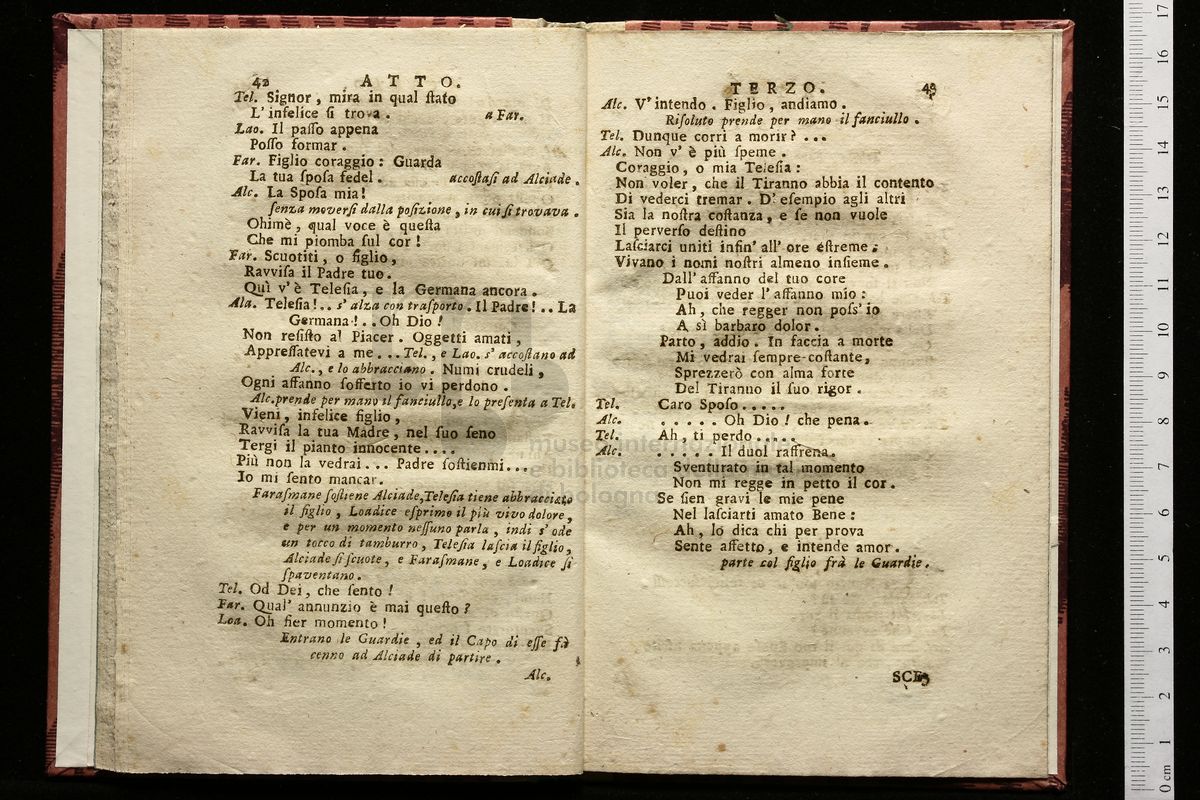 42 ATTO.
Tel. Signor, mira in qual ſtato
L' infelice ſi trova. a Far.
Lao. Il paſſo appena
Poſſo formar.
Far. Figlio coraggio: Guarda
La tua ſpoſa fedel. accoſtaſi ad Alciade.
Alc. La Spoſa mia!
ſenza moverſi dalla poſizione, in cui ſi trovava.
Ohimè, qual voce è queſta
Che mi piomba ſul cor!
Far. Scuotiti, o figlio,
Ravviſa il Padre tuo.
Quì v' è Teleſia, e la Germana ancora.
Ala. Teleſia!.. s' alza con traſporto. Il Padre!.. La
Germana!..Oh Dio!
Non reſiſto al Piacer. Oggetti amati,
Appreſſatevi a me...Tel., e Lao. s' accoſtano ad
Alc., e lo abbracciano. Numi crudeli,
Ogni affanno ſofferto io vi perdono.
Alc.prende per mano il fanciullo,e lo preſenta a Tel.
Vieni, infelice figlio,
Ravviſa la tua Madre, nel ſuo ſeno
Tergi il pianto innocente....
Più non la vedrai... Padre ſoſtienmi...
Io mi ſento mancar.
Faraſmane ſoſtiene Alciade,Teleſia tiene abbracciato
il figlio, Loadice eſprime il più vivo dolore,
e per un momento neſſuno parla, indi s' ode
un tocco di tamburro, Teleſia laſcia il figlio,
Alciade ſi ſcuote, e Faraſmane, e Loadice ſi
ſpaventano.
Tel. Od Dei, che ſento!
Far. Qual' annunzio è mai queſto?
Loa. Oh fier momento!
Entrano le Guardie, ed il Capo di eſſe fà
cenno ad Alciade di partire.
Alc.
TERZO. 43
Alc. V' intendo. Figlio, andiamo.
Riſoluto prende per mano il fanciullo.
Tel. Dunque corri a morir? ...
Alc. Non v' è più ſpeme.
Coraggio, o mia Teleſia:
Non voler, che il Tiranno abbia il contento
Di vederci tremar. D' eſempio agli altri
Sia la noſtra coſtanza, e ſe non vuole
Il perverſo deſtino
Laſciarci uniti infin' all' ore eſtreme;
Vivano i nomi noſtri almeno inſieme.
Dall' affanno del tuo core
Puoi veder l' affanno mio:
Ah, che regger non poſs' io
A sì barbaro dolor.
Parto, addio. In faccia a morte
Mi vedrai ſempre-coſtante,
Sprezzerò con alma forte
Del Tiranno il ſuo rigor.
Tel. Caro Spoſo.....
Alc. ..... Oh Dio! che pena.
Tel. Ah, ti perdo.....
Alc. ..... Il duol raffrena.
Sventurato in tal momento
Non mi regge in petto il cor.
Se ſien gravi le mie pene
Nel laſciarti amato Bene:
Ah, lo dica chi per prova
Sente affetto, e intende amor.
parte col figlio frà le Guardie.
SCE-
museo internazionale
e biblioteca
di bologna
17
16
15
14
13
12
11
10
9
8
7
6
5
4
3
2
1
0 cm